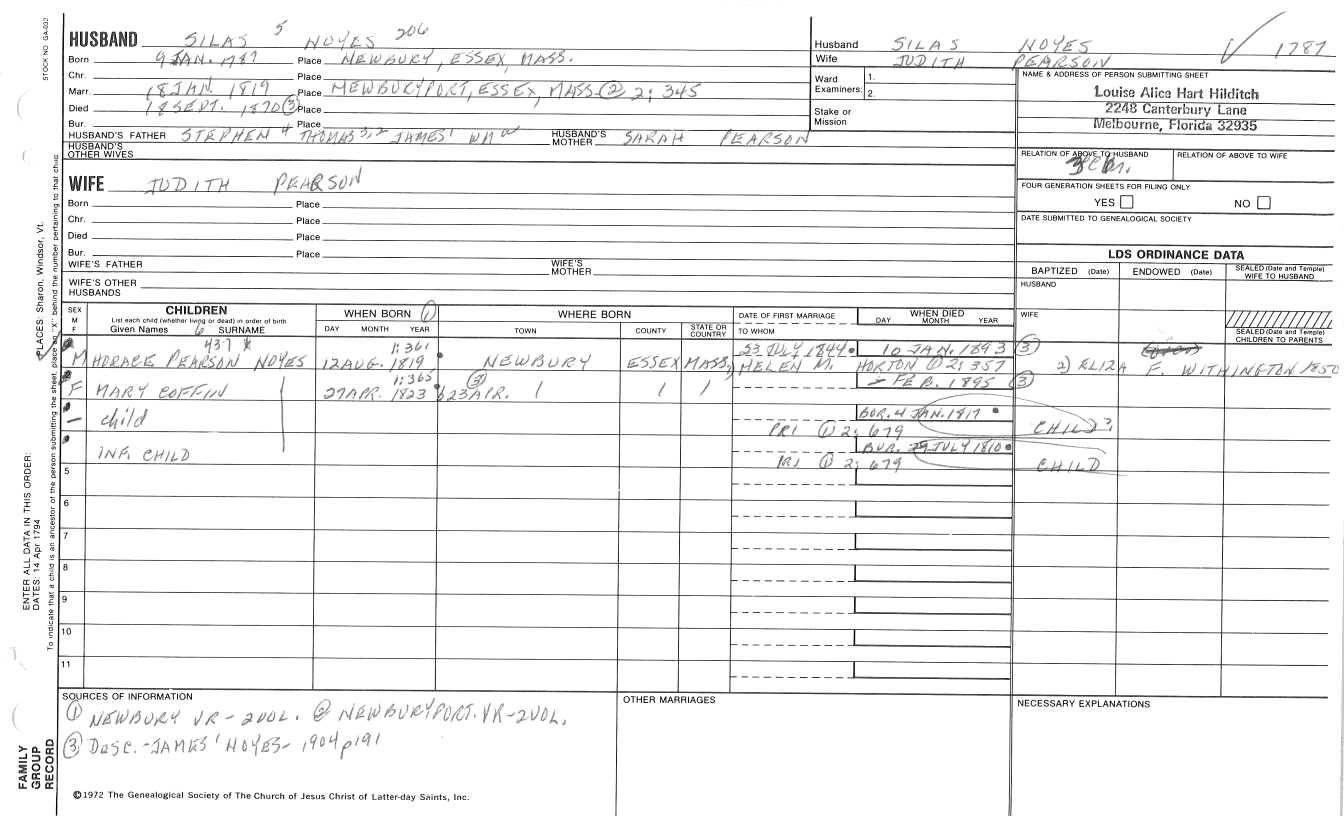 STOCK NO. GA-032
HUSBAND SILAS 5 NOYES 206
Born 9 JAN. 1787 Place NEWBURY, ESSEX, MASS.
Chr. Place
Marr. 18 JAN. 1819 Place NEWBURYPORT, ESSEX, MASS. ② 2: 345
Died 18 SEPT. 1870 ③ Place
Bur. Place
HUSBAND'S FATHER STEPHEN 4 THOMAS 3,2 JAMES 1 WM HUSBAND'S MOTHER SARAH PEARSON
HUSBAND'S OTHER WIVES
WIFE JUDITH PEARSON
Born Place
Chr. Place
Died Place
Bur. Place
WIFE'S FATHER WIFE'S MOTHER
WIFE'S OTHER HUSBANDS
Husband SILAS NOYES √ 1787
Wife JUDITH PEARSON
Ward Examiners: 1.
2.
Stake or Mission
NAME & ADDRESS OF PERSON SUBMITTING SHEET
Louise Alice Hart Hilditch
2248 Canterbury Lane
Melbourne, Florida 32935
RELATION OF ABOVE TO HUSBAND RELATION OF ABOVE TO WIFE
FOUR GENERATION SHEETS FOR FILING ONLY
YES NO
DATE SUBMITTED TO GENEALOGICAL SOCIETY
LDS ORDINANCE DATA
BAPTIZED (Date) ENDOWED (Date) SEALED (Date and Temple) WIFE TO HUSBAND
HUSBAND
WIFE
SEALED (Date and Temple) CHILDREN TO PARENTS
SEX M F CHILDREN WHEN BORN ① WHERE BORN DATE OF FIRST MARRIAGE WHEN DIED
List each child (whether living or dead) in order of birth
Given Names 6 SURNAME DAY MONTH YEAR TOWN COUNTY STATE OR COUNTRY TO WHOM DAY MONTH YEAR
437 X 1:361 23 JULY 1844 10 JAN. 1893 ③
M HORACE PEARSON NOYES 12 AUG. 1819 NEWBURY ESSEX MASS. 1) HELEN M. HORTON ① 2: 357 2) ELIZA F. WITHINGTON 1850
1:365 ③ – FEB. 1895 ③
F MARY COFFIN 27 APR. 1823 b 23 APR.
BUR. 4 JAN. 1817
– child PR1 ① 2: 679 CHILD?
BUR. 29 JULY 1810
INF. CHILD PR1 ① 2: 679 CHILD
5
6
7
8
9
10
11
SOURCES OF INFORMATION
① NEWBURY VR - 2 VOL. ② NEWBURYPORT. VR - 2 VOL.
③ DESC. - JAMES 1 NOYES - 1904 p 191
OTHER MARRIAGES
NECESSARY EXPLANATIONS
©1972 The Genealogical Society of The Church of Jesus Christ of Latter-day Saints, Inc.
FAMILY GROUP RECORD
ENTER ALL DATA IN THIS ORDER:
DATES: 14 Apr 1794
PLACES: Sharon, Windsor, Vt.
To indicate that a child is an ancestor of the person submitting the sheet, place an "X" behind the number pertaining to that child